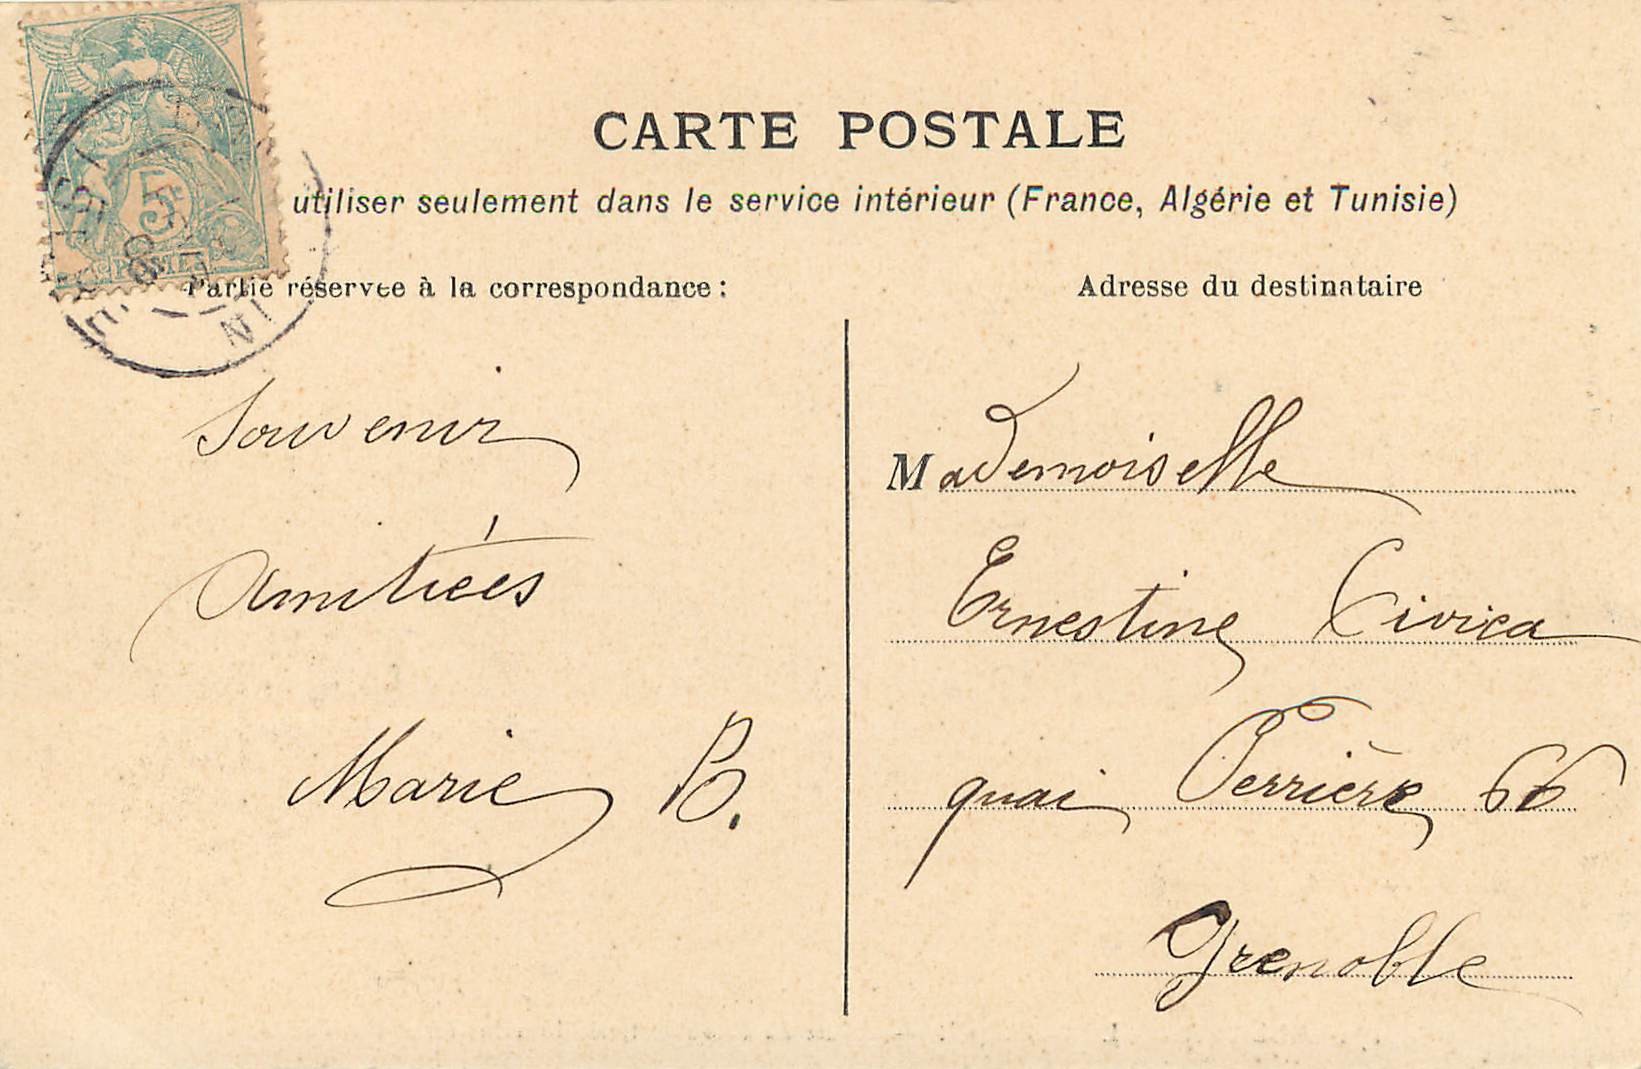 CARTE POSTALE
utiliser seulement dans le service intérieur (France, Algérie et Tunisie)
Partie réservée à la correspondance :
Adresse du destinataire
5
Souvenir
Amitiées
Marie B.
Mademoiselle
Ernestine Civica
quai Perrière 66
Grenoble